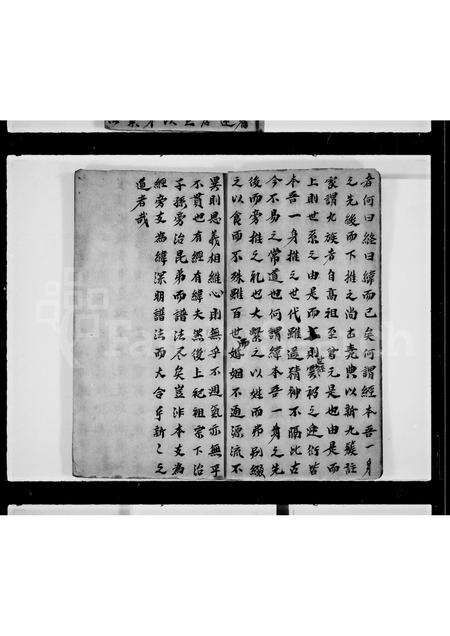 者何曰經曰緯而已矣何謂經本吾一身
之先後而下推之尚書堯典以親九族註
家謂九族者自高祖至曾元是也由是而
上則世系之由是而下則雲礽之遠衍皆
本吾一身推之世代雖遙精神不隔此古
今不易之常道也何謂緯本吾一身之先
後而旁推之礼也大繫之以姓而弗别綴
之以食而不殊雖百世婚姻不通源流不
異則恩義相維心則無乎不週氣亦無乎
不貫也有經有緯夫然後上祀祖宗下治
子孫旁治昆弟而譜法尽矣豈非本支為
經旁支為緯深明譜法而大合乎親之之
道者哉